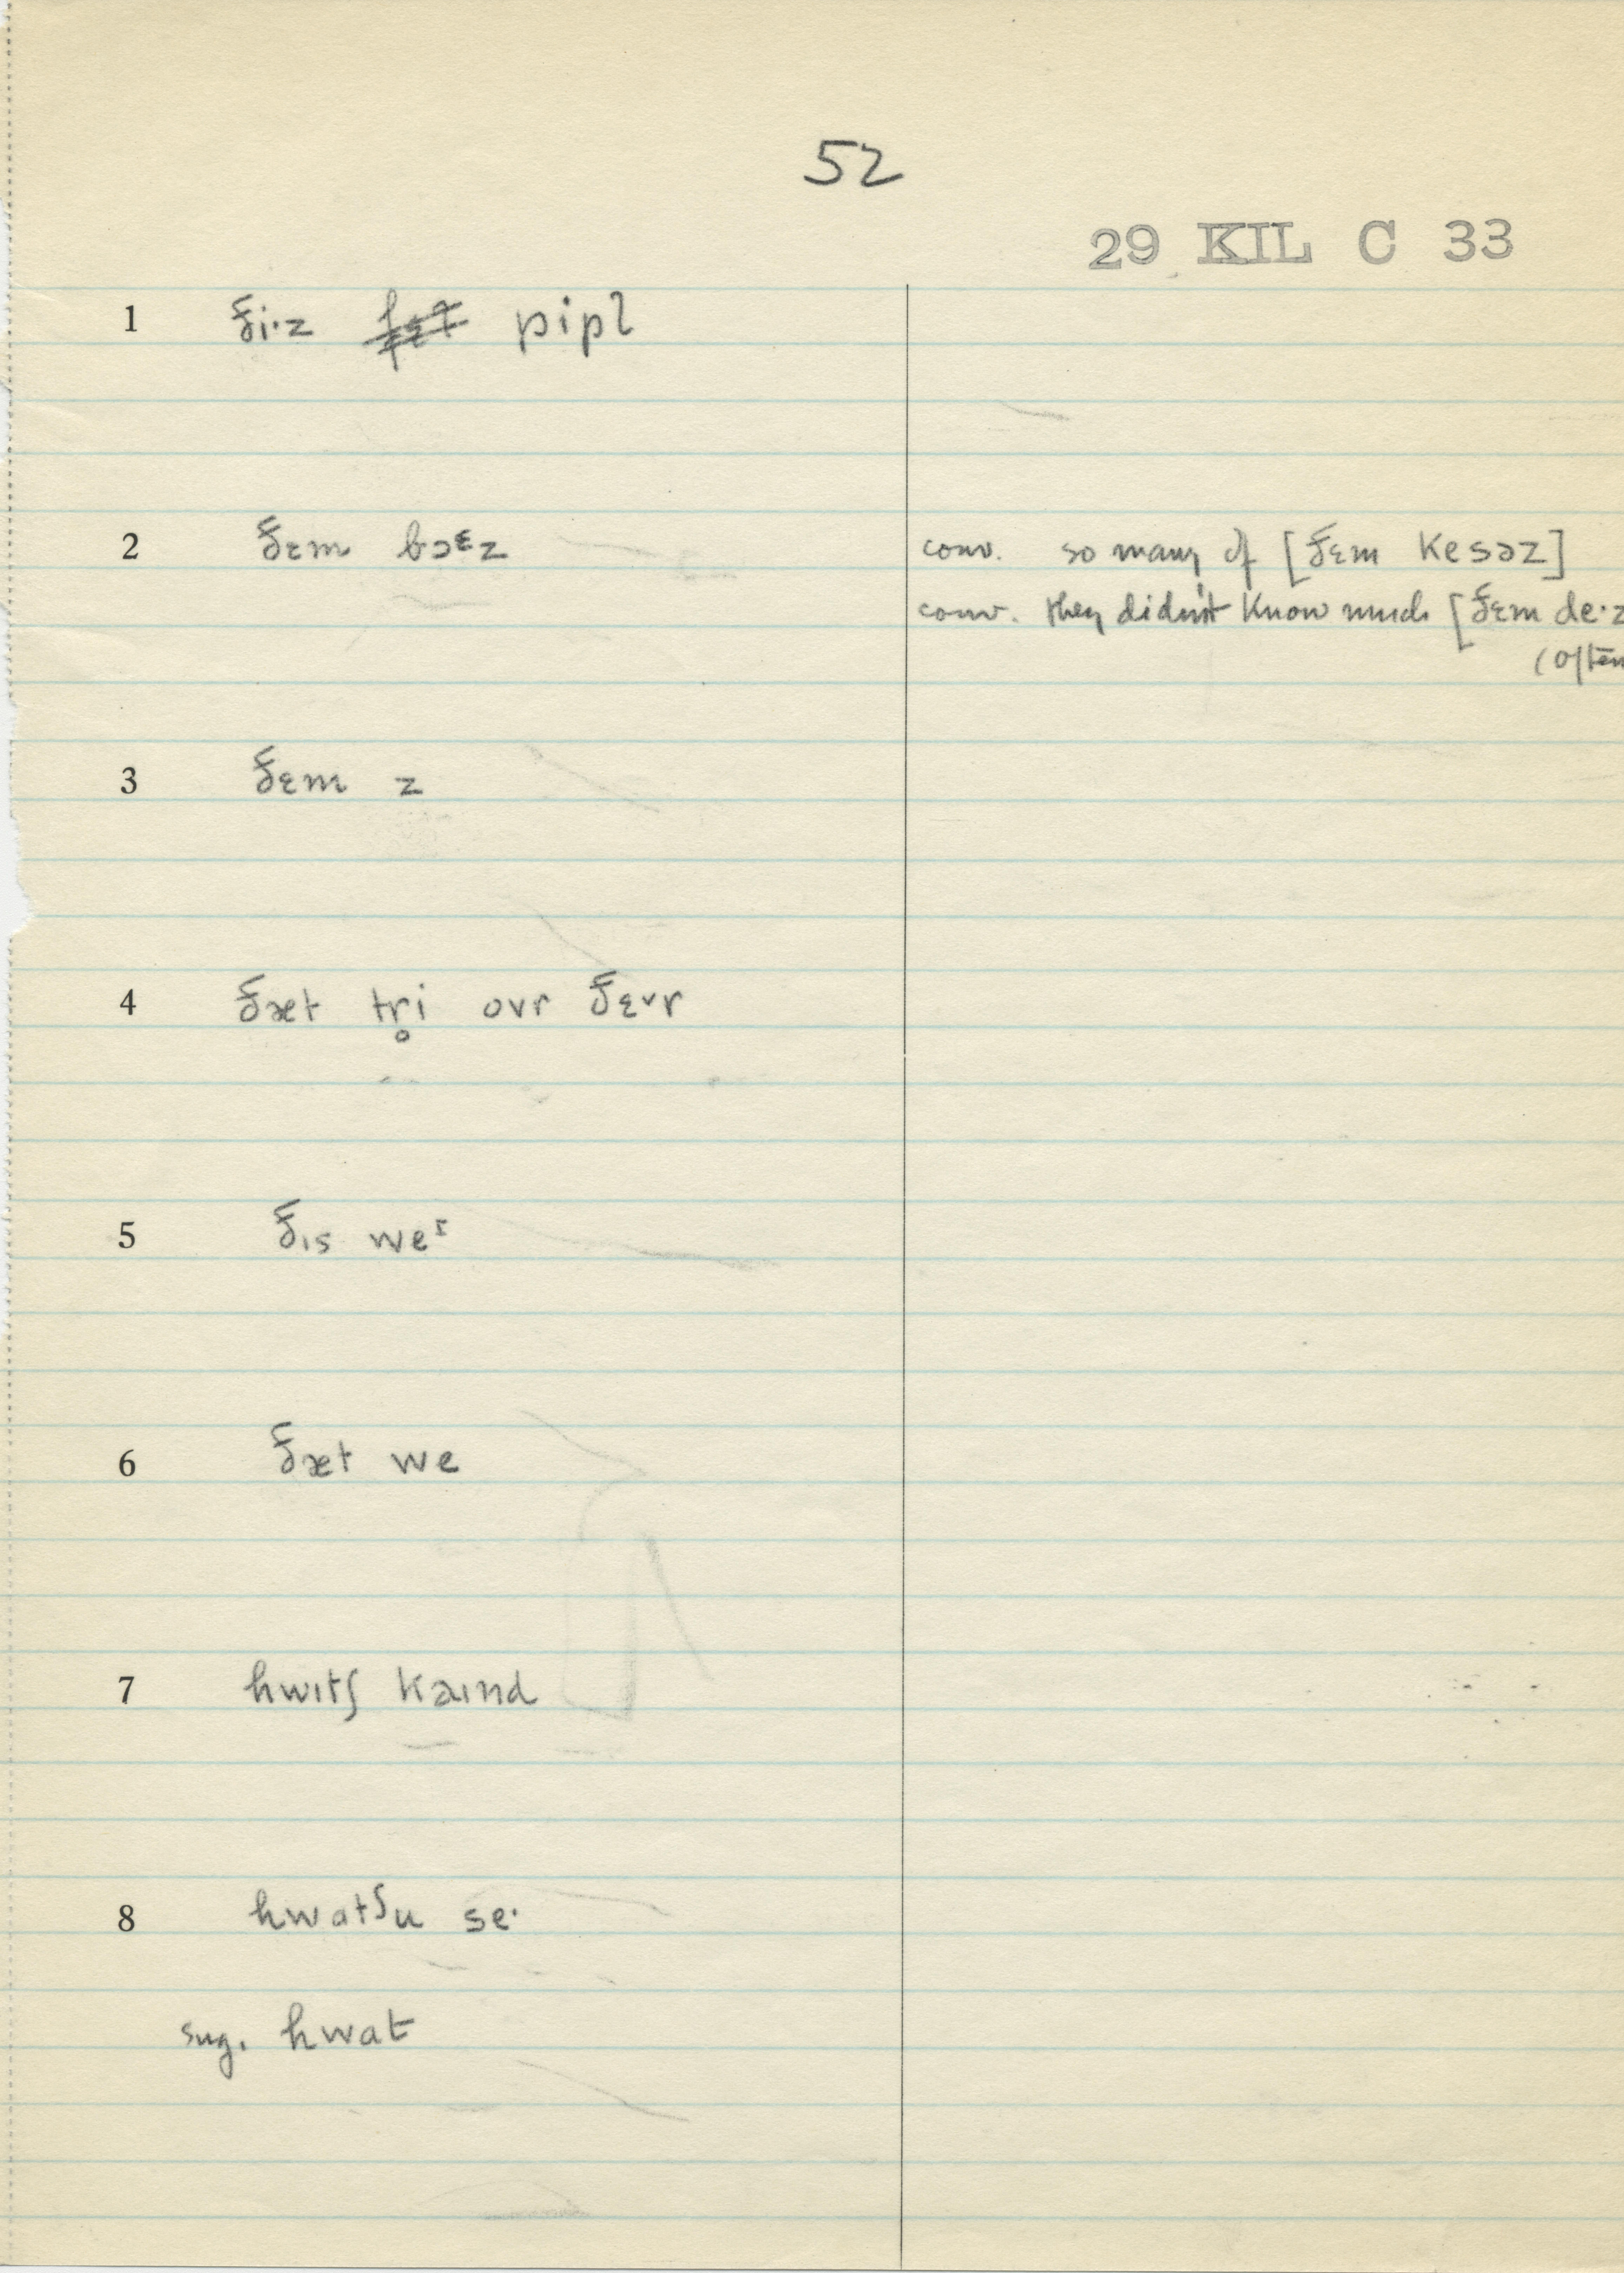 52
29 KIL C 33
1 ði·z pipl
2 ðɛm bɔᵋz
conv. so many of [ðɛm kesəz]
conv. they didn't know much [ðɛm de·z
(often
3 ðɛm z
4 ðæt tr̥i ovr ðɛ˅r
5 ðɪs weᶦ
6 ðæt we
7 hwɪtʃ kaɪnd
8 hwatʃu se·
sug. hwat